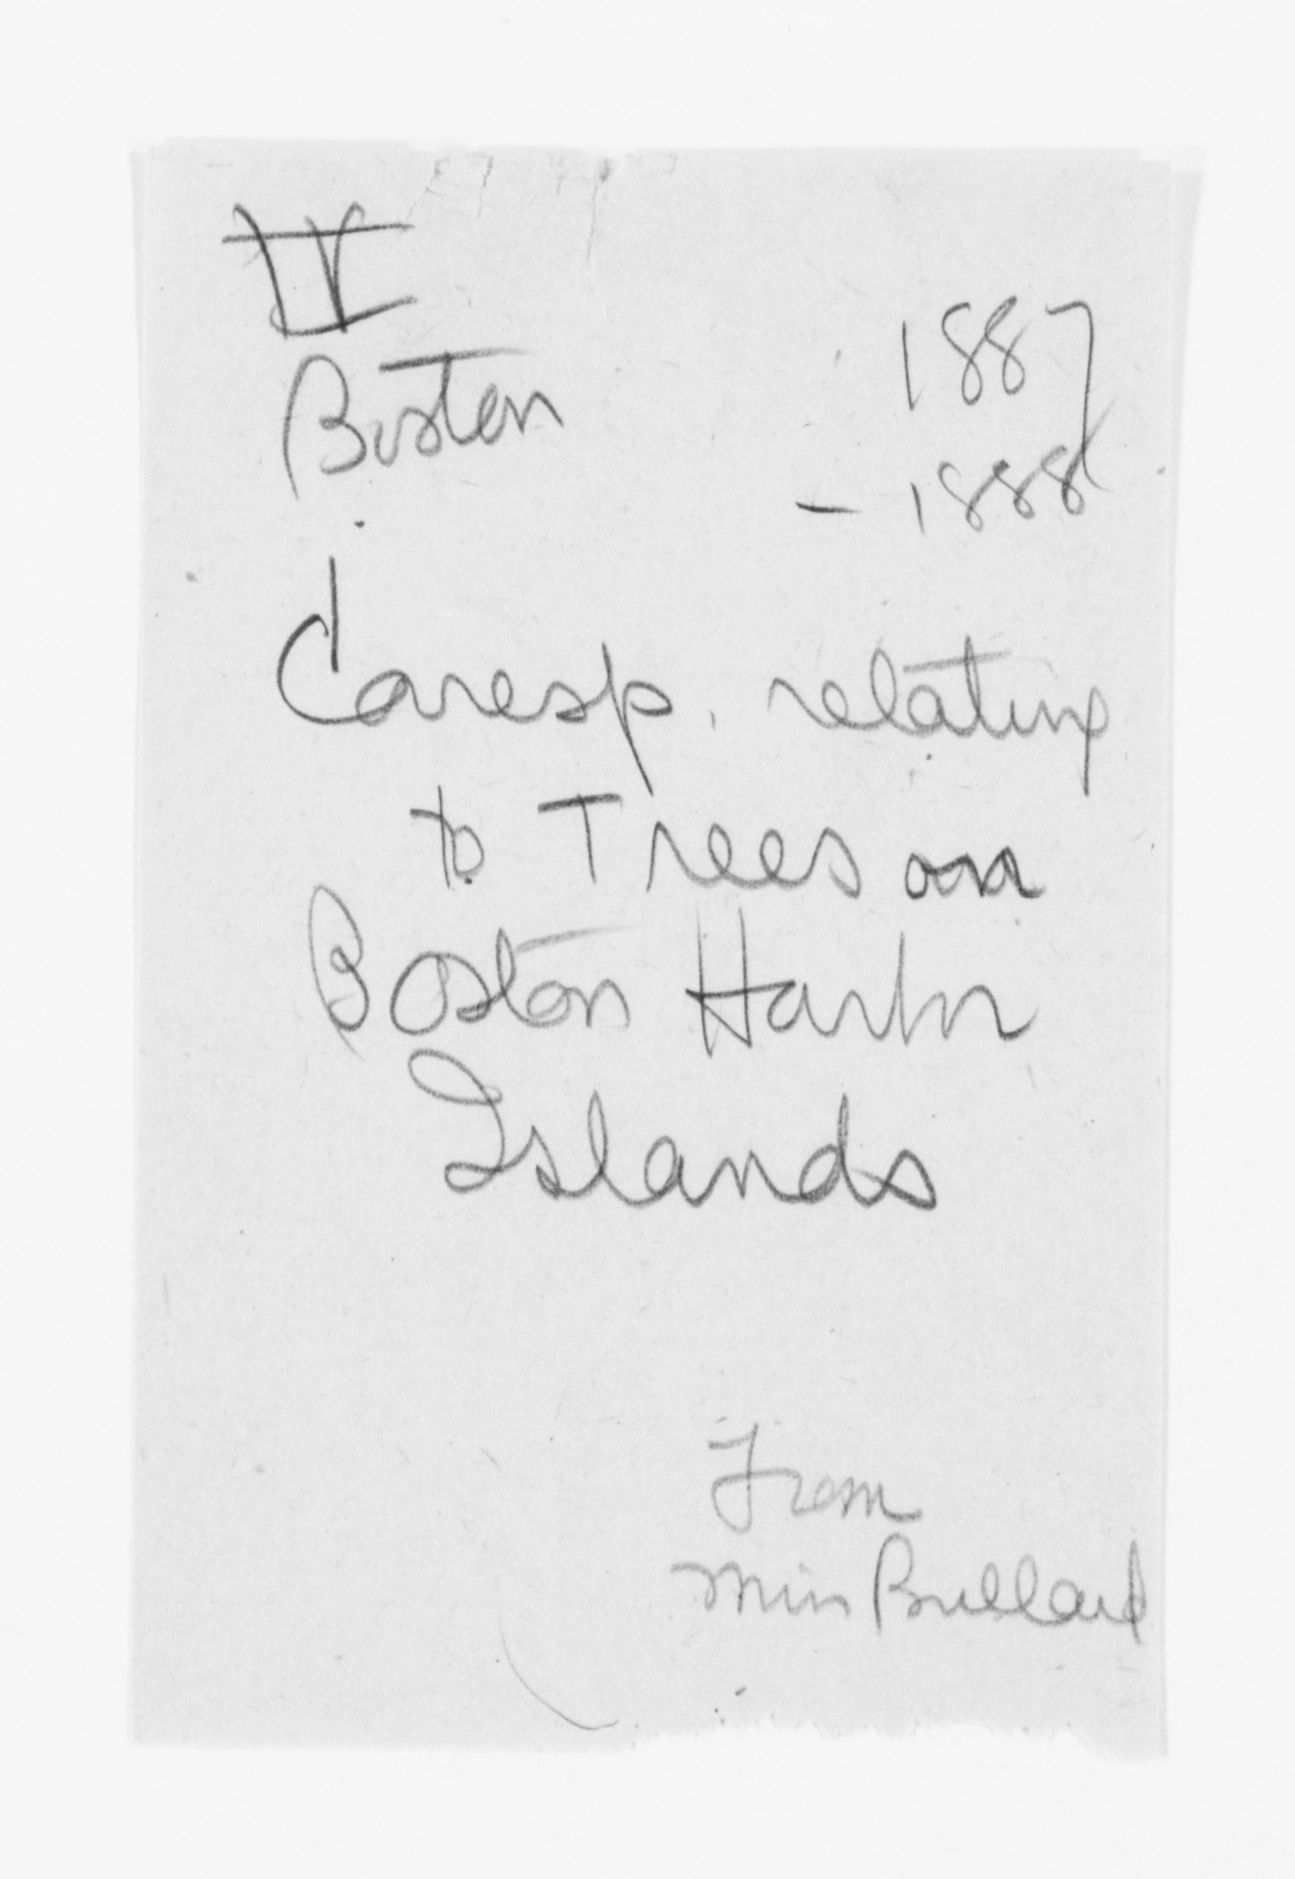 IV
Boston 1887
- 1888
Coresp. relating
to Trees on
Boston Harbor
Islands
From
Miss Bullard